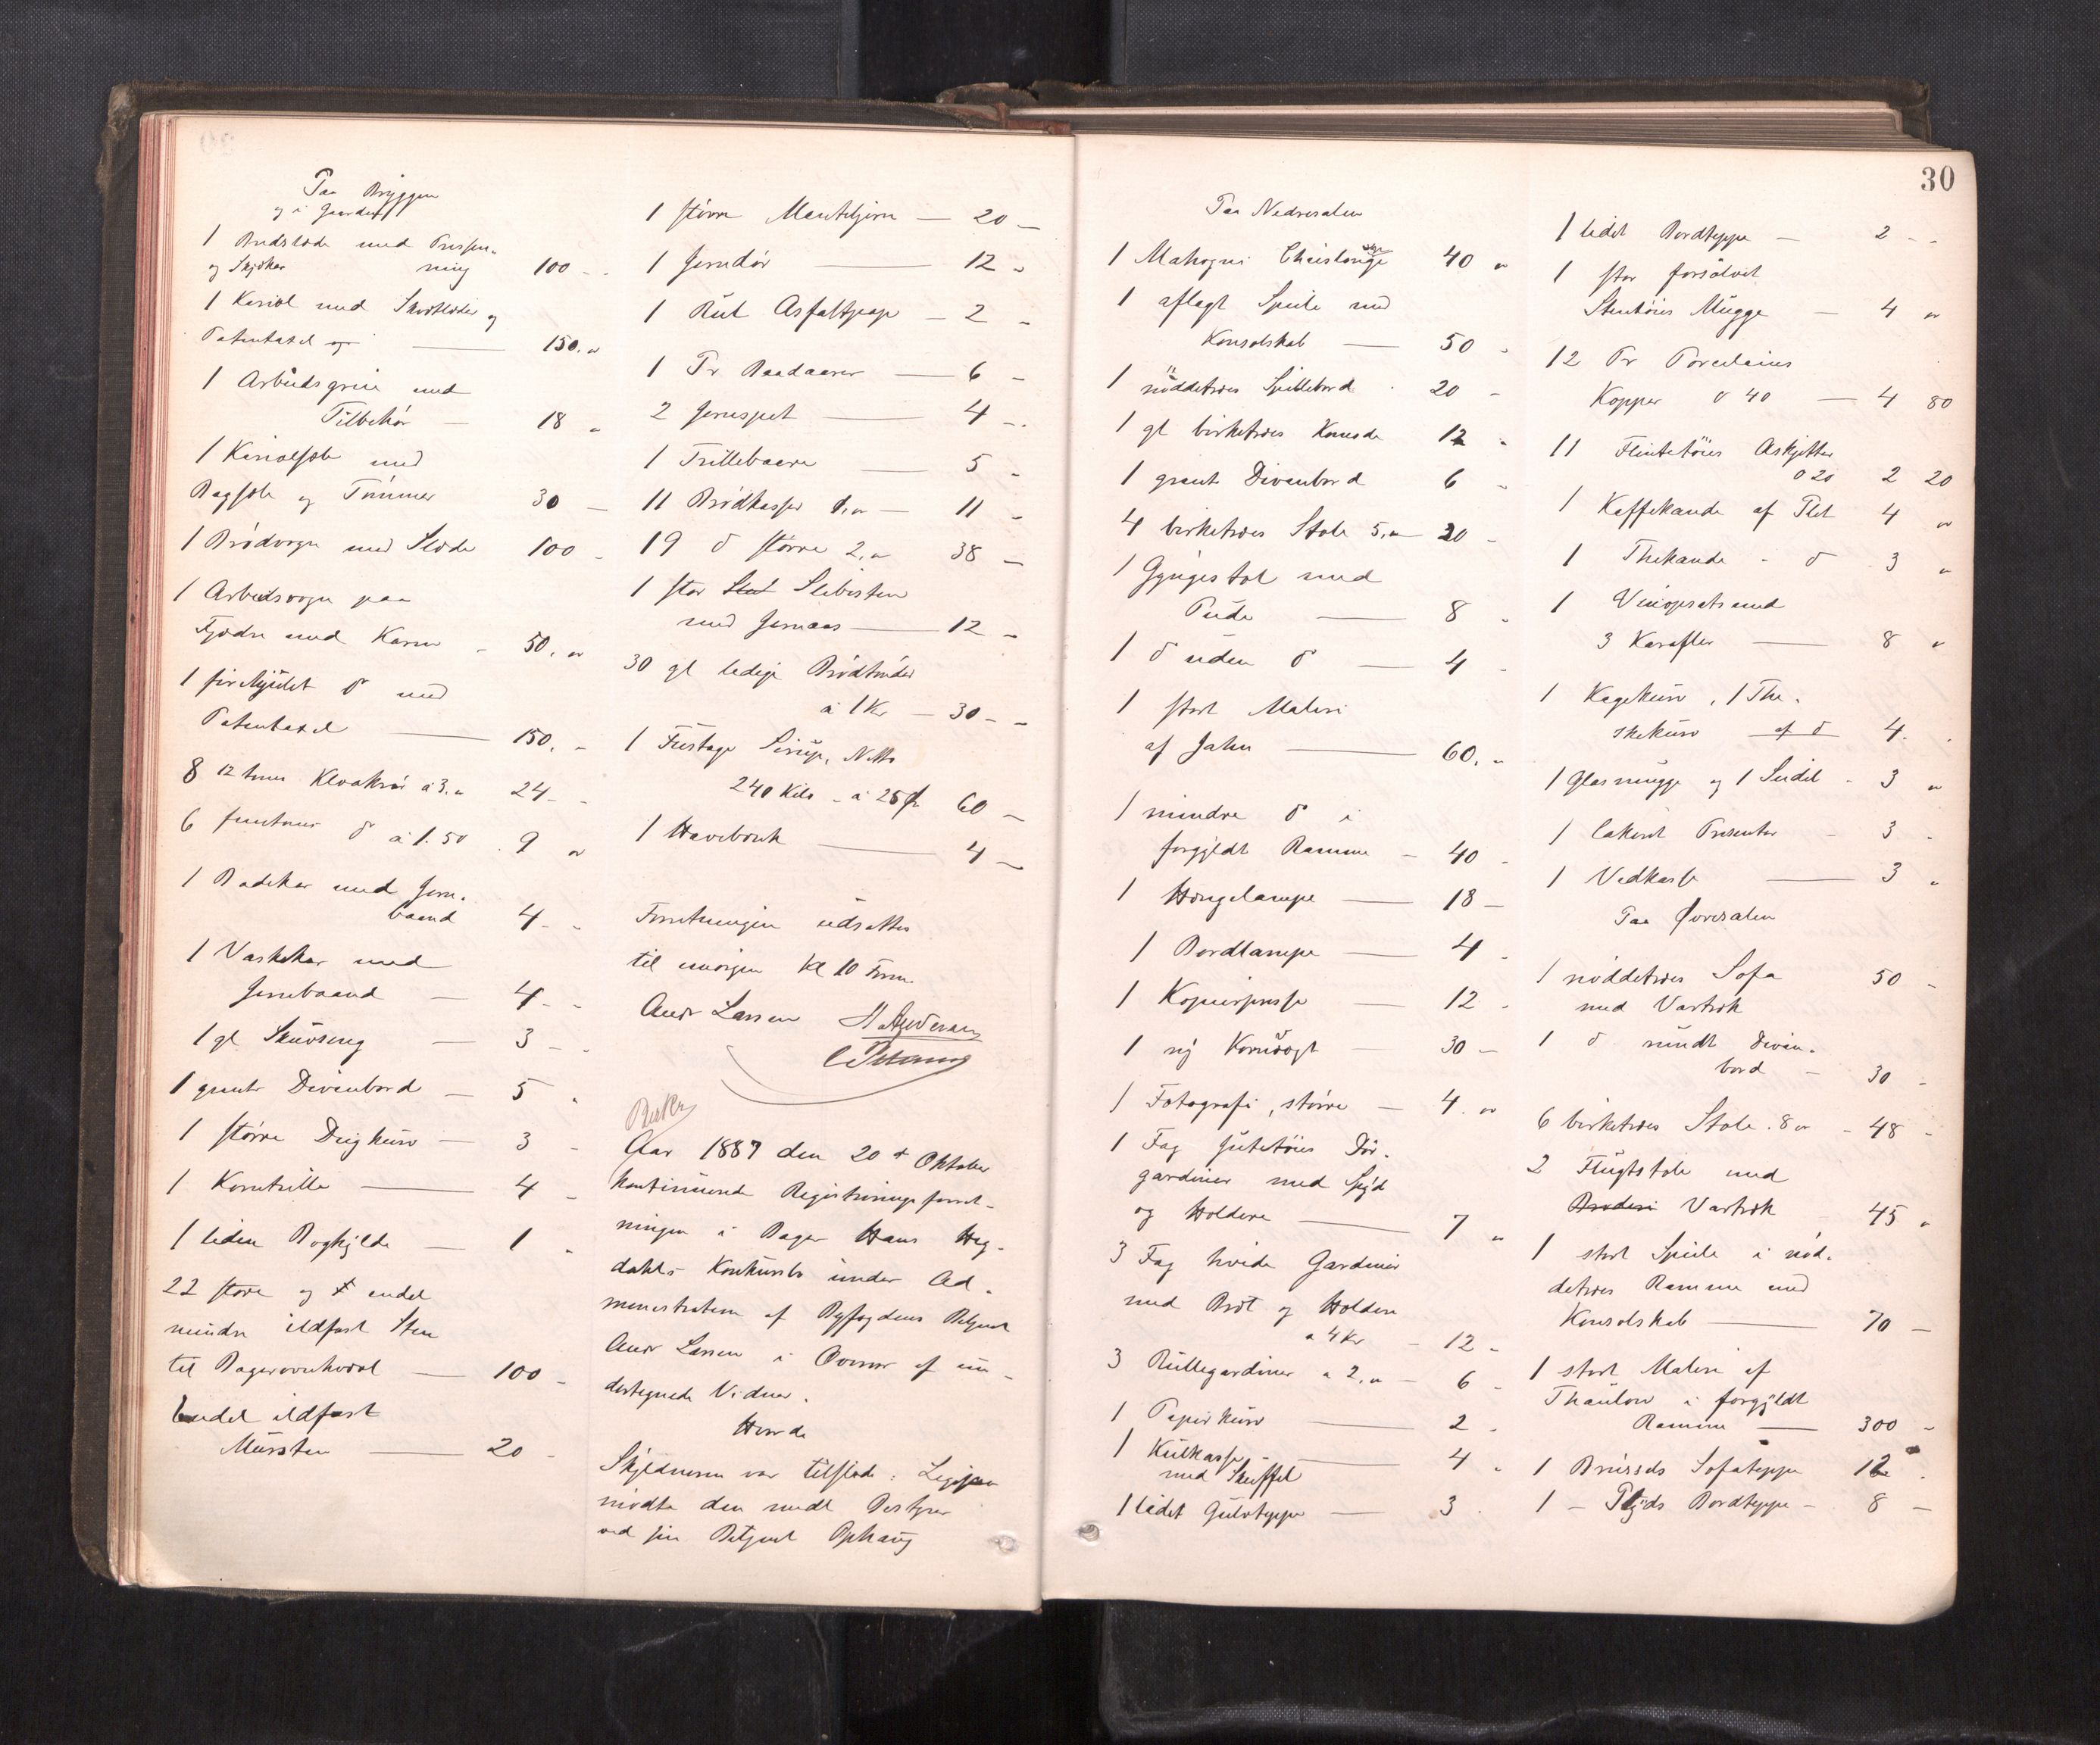 Paa Bryggen
og i Gaarden
1 Bredslæde med Presen-
og Skjækar ning 100 -
1 Kariol med Skvætlæder og
Patentaxel 150. "
1 Arbeidsgreie med
Tilbehør - 18 "
1 Kariolsæle med
Bagsæle og Tømmer 30 -
1 Brødvogn med Slæde 100 -
1 Arbeidsvogn paa
Fjædre med Karm - 50. "
1 firehjulet do med
Patentaxel 150. -
8 12 toms Kloakrør à 3. " 24 -
6 femtoms do à 1.50 9 "
1 Badekar med Jern-
baand 4 -
1 Vaskekar med
Jernbaand - 4 -
1 gl Skuvseng - 3 -
1 grønt Divanbord - 5 "
1 større Deigkurv - 3 -
1 Korntrille - 4 -
1 liden Boghylde - 1 "
22 store og endel
mindre ildfast Sten
til Bagerovnhvæl - 100 -
Endel ildfast
Mursten - 20 -
1 større - 20 -
1 Jerndør - 12 "
1 Rul Asfaltpap - 2 "
1 Pr Baadaarer - 6 -
2 Jernspet - 4 -
1 Trillebaare - 5 -
11 Brødkasser 1. " - 11 -
19 do større 2. " 38 -
1 stor Slibesten
med Jernaas - 12 -
30 gl ledige Brødtønder
à 1 Kr - 30 - -
1 Fustage Sirup, Netto
240 Kilo - à 25 Ø 60 -
1 Havebænk - 4 -
Forretningen udsattes
til imorgen Kl 10 Form.
Andr Larsen
Aar 1887 den 20de Oktober
kontinuerede Registreringsforret-
ningen i Bager Hans Heg-
dahls Konkursbo under Ad-
ministration af Byfogdens Betjent
Andr Larsen i Overvær af un-
dertegnede Vidner.
Hvorda
Skyldneren var tilstede. Ligesaa
mødte den medt Bestyrer
ved sin Betjent Ophaug
30
Paa Nedresalen
1 Mahogni Chaiselongue 40 "
1 aflagt Speile med
Konsolskab - 50 -
1 nøddetræes Spillebord - 20 -
1 gl birketræes Komode 12 "
1 grønt Divanbord 6 -
4 birketræes Stole 5. " 20 -
1 Gyngestol med
Pude - 8 "
1 do uden do - 4 -
1 stort Maleri
af Jahn - 60. "
1 mindre do i
forgyldt Ramme - 40 -
1 Hængelampe - 18 -
1 Bordlampe - 4 -
1 Kopierpresse - 12 -
1 ny Kornvægt - 30 -
1 Fotografi, større - 4. "
1 Fag Jutetøies Dør-
gardiner med Spyd
og Holdere - 7 "
3 Fag hvide Gardiner
med Bræt og Holdere
à 4 Kr - 12 -
3 Rullegardiner à 2. " - 6 -
1 Papirkurv - 2 -
1 Kulkasse -
med Skuffel 4 "
1 lidet Gulvteppe - 3
1 lidet Bordteppe - 2 - -
1 stor forsølvet
Stentøies Mugge - 4 "
12 Pr Porcelains
Kopper à 40 - 4 80
11 Flintetøies Askjetter
à 20 2 20
1 Kaffekande af Plet 4 "
1 Thekande - do 3 "
1 Vinopsats med
3 Karafler - 8 "
1 Kagekurv, 1 The-
skekurv af do 4 -
1 Glasmugge og 1 Seidel - 3 "
1 lakeret Presenter - 3 -
1 Vedkasse - 3 "
Paa Øvresalen
1 nøddetræes Sofa 50 -
med Vartræk
1 do rundt Divan-
bord - 30 -
6 birketræes Stole. 8 " - 48 -
2 Flugtstole med
Broderi Vartræk 45 "
1 stort Speile i nød-
detræes Ramme med
Konsolskab - 70 -
1 stort Maleri af
Thaulow i forgyldt
Ramme - 300 -
1 Brüssels Sofateppe 12 -
1 - Plyds Bordteppe - 8 -